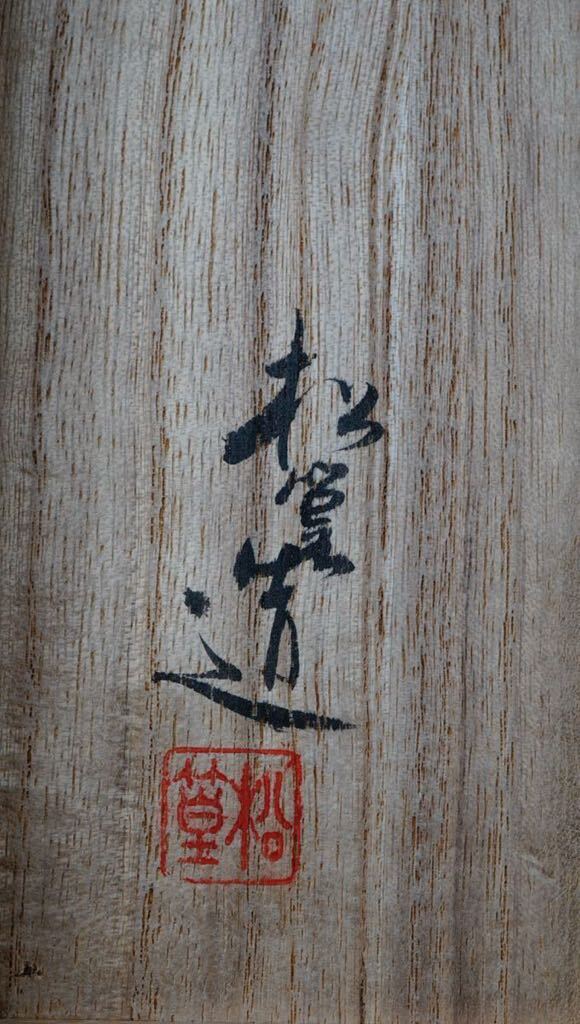 松篁造
松篁